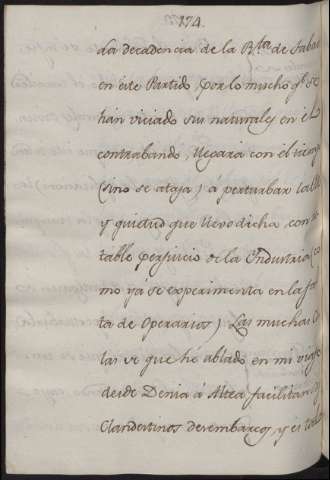 174.
La decadencia de la Rta. de Tabac
en este Partido (por lo mucho qe. se
han viciado sus naturales en el
contrabando, llegará con el tiemp
(sino se ataja) á perturbar la
y quietud que llevo dicha, con
table perjuicio de la Industria (co
mo ya se experimenta en la fal
ta de Operarios) Las muchas
las se que he ablado en mi viage
desde Denia á Altea facilitan
Clandestinos desembarcos, y el